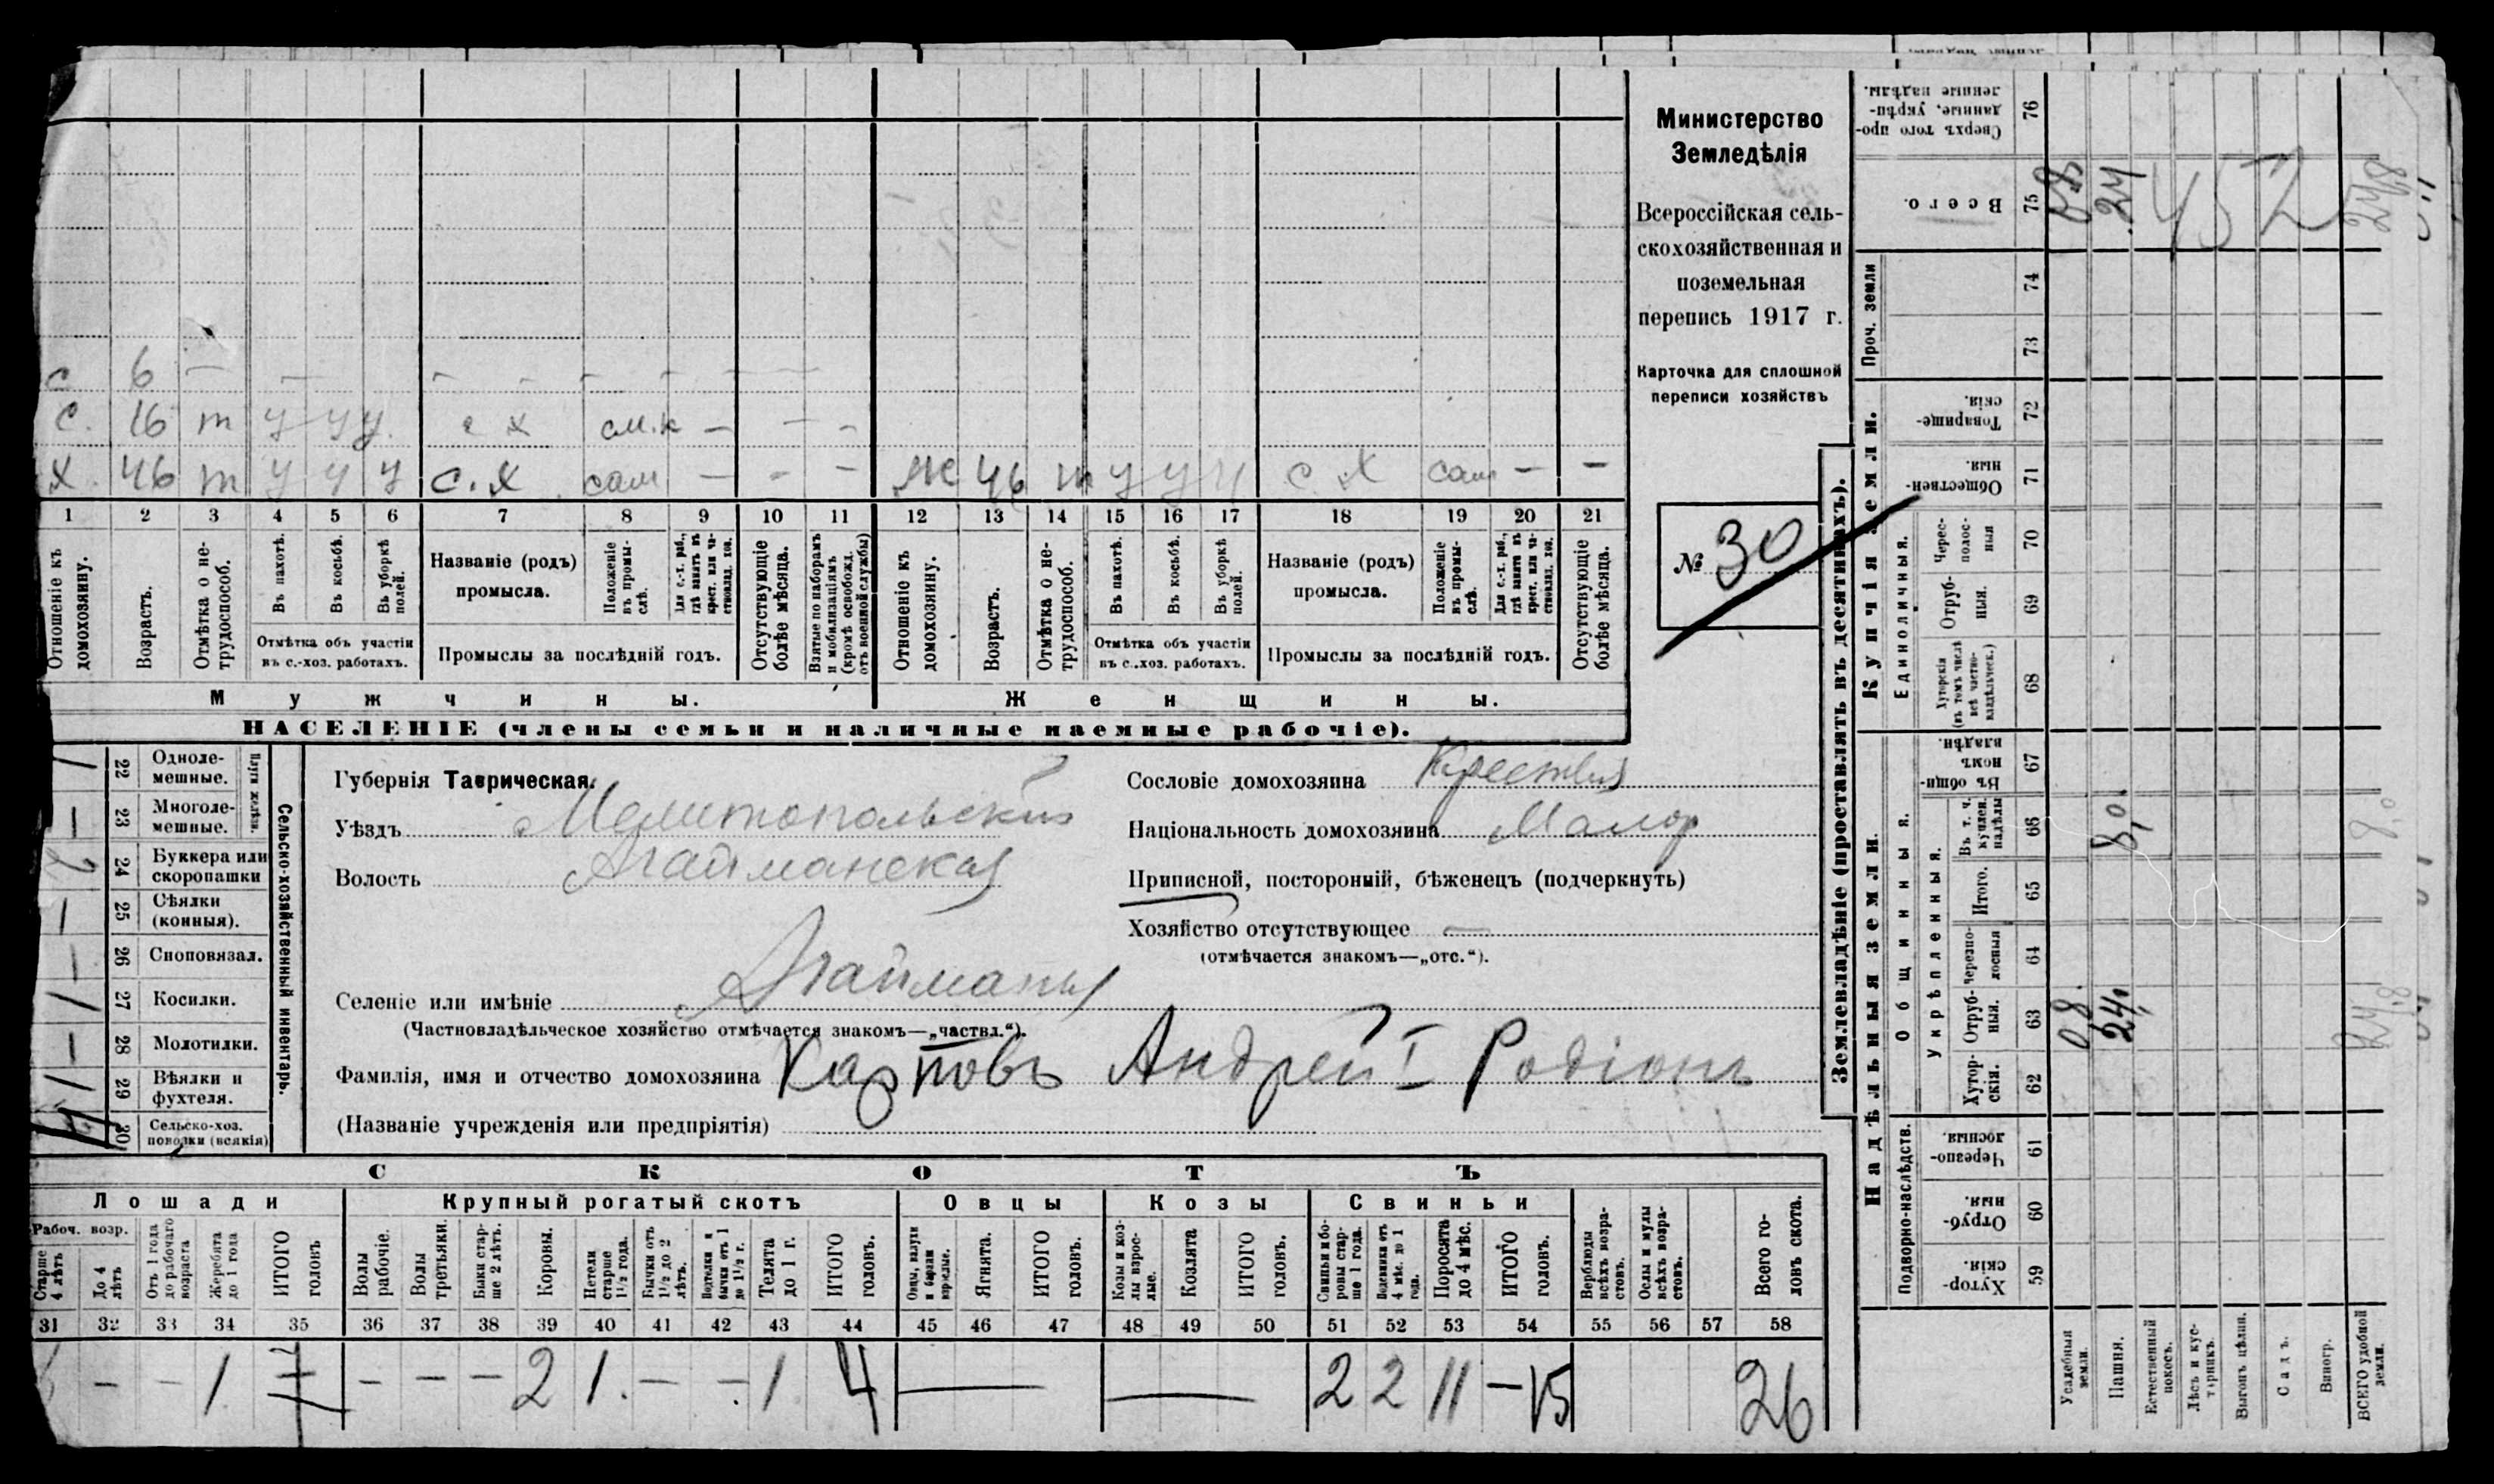 Министерство
Земледѣлія
Всероссійская сель-
скохозяйственная и
поземельная
перепись 1917 г.
Карточка для сплошной
переписи хозяйствъ
№ 30
с 6 — — — — — — — —
с. 16 т у у у с х — - -
х. 46 т у у у с. х сам — - — ж 46 т у у у с. х сам — —
1 2 3 4 5 6 7 8 9 10 11 12 13 14 15 16 17 18 19 20 21
Отношеніе къ домохозяину.
Возрастъ.
Отмѣтка о не-трудоспособ.
Въ пахотѣ.
Въ косьбѣ.
Въ уборкѣ полей.
Отмѣтка объ участіи въ с.-хоз. работахъ.
Названіе (родъ) промысла.
Положеніе въ промы-слѣ.
Для с.-х. раб., гдѣ занятъ въ крест. или ча-стновлад. хоз.
Промыслы за послѣдній годъ.
Отсутствующіе болѣе мѣсяца.
Взятые по наборамъ и мобилизаціямъ (кромѣ освобожд. отъ военной службы)
Отношеніе къ домохозяину.
Возрастъ.
Отмѣтка о не-трудоспособ.
Въ пахотѣ.
Въ косьбѣ.
Въ уборкѣ полей.
Отмѣтка объ участіи въ с.-хоз. работахъ.
Названіе (родъ) промысла.
Положеніе въ промы-слѣ.
Для с.-х. раб., гдѣ занятъ въ крест. или ча-стновлад. хоз.
Промыслы за послѣдній годъ.
Отсутствующіе болѣе мѣсяца.
Мужчины. Женщины.
НАСЕЛЕНІЕ (члены семьи и наличные наемные рабочіе).
Сельско-хозяйственный инвентарь.
Плуги желѣзн.
22 Одноле-мешные.
23 Многоле-мешные.
2 24 Буккера или скоропашки
25 Сѣялки (конныя).
26 Сноповязал.
27 Косилки.
28 Молотилки.
29 Вѣялки и фухтеля.
30 Сельско-хоз. повозки (всякія)
Губернія Таврическая.
Уѣздъ Мелитопольскій
Волость Агайманская
Селеніе или имѣніе Агайманы
(Частновладѣльческое хозяйство отмѣчается знакомъ—„частвл.“).
Фамилія, имя и отчество домохозяина Карповъ Андрей I Родіонъ
(Названіе учрежденія или предпріятія)
Сословіе домохозяина
Національность домохозяина Малор
Приписной, посторонній, бѣженецъ (подчеркнуть)
Хозяйство отсутствующее —
(отмѣчается знакомъ—„отс.“).
СКОТЪ
Лошади Крупный рогатый скотъ Овцы Козы Свиньи
Рабоч. возр.
Старше 4 лѣтъ
До 4 лѣтъ
Отъ 1 года до рабочаго возраста
Жеребята до 1 года
ИТОГО головъ
Волы рабочіе.
Волы третьяки.
Быки стар-ше 2 лѣтъ.
Коровы.
Нетели старше 1½ года.
Бычки отъ 1½ до 2 лѣтъ.
Подтелки и бычки отъ 1 до 1½ г.
Телята до 1 г.
ИТОГО головъ.
Овцы, валухи и бараны взрослые.
Ягнята.
ИТОГО головъ.
Козы и коз-лы взрос-лые.
Козлята
ИТОГО головъ.
Свиньи и бо-ровы стар-ше 1 года.
Подсвинки отъ 4 мѣс. до 1 года.
Поросята до 4 мѣс.
ИТОГО головъ.
Верблюды всѣхъ возра-стовъ.
Ослы и мулы всѣхъ возра-стовъ.
Всего го-ловъ скота.
31 32 33 34 35 36 37 38 39 40 41 42 43 44 45 46 47 48 49 50 51 52 53 54 55 56 57 58
— — 1 — — — 2 1. — — 1 4 — — 2 2 11 — 15 26
Землевладѣніе (проставлять въ десятинахъ).
Надѣльныя земли. Купчія земли. Проч. земли
Подворно-наслѣдств.
Общинныя.
Укрѣпленныя.
Единоличныя.
Хутор-скія. 59
Отруб-ныя. 60
Черезпо-лосныя. 61
Хутор-скія. 62
Отруб-ныя. 63
Черезпо-лосныя 64
Итого. 65
Въ т. ч. куплен. надѣлы 66
Въ общи-номъ владѣн. 67
Хуторскія (въ томъ числѣ всѣ частно-владѣльческ.) 68
Отруб-ныя. 69
Черес-полос-ныя 70
Обществен-ныя. 71
Товарище-скія. 72
73
74
Всего. 75
Сверхъ того про-данные, укрѣп-ленные надѣлы. 76
Усадебныя земли.
Пашня.
Естественный покосъ.
Лѣсъ и кус-тарникъ.
Выгонъ цѣлин.
Садъ.
Виногр.
ВСЕГО удобной земли.
08
24
8,0
08
24
452
248